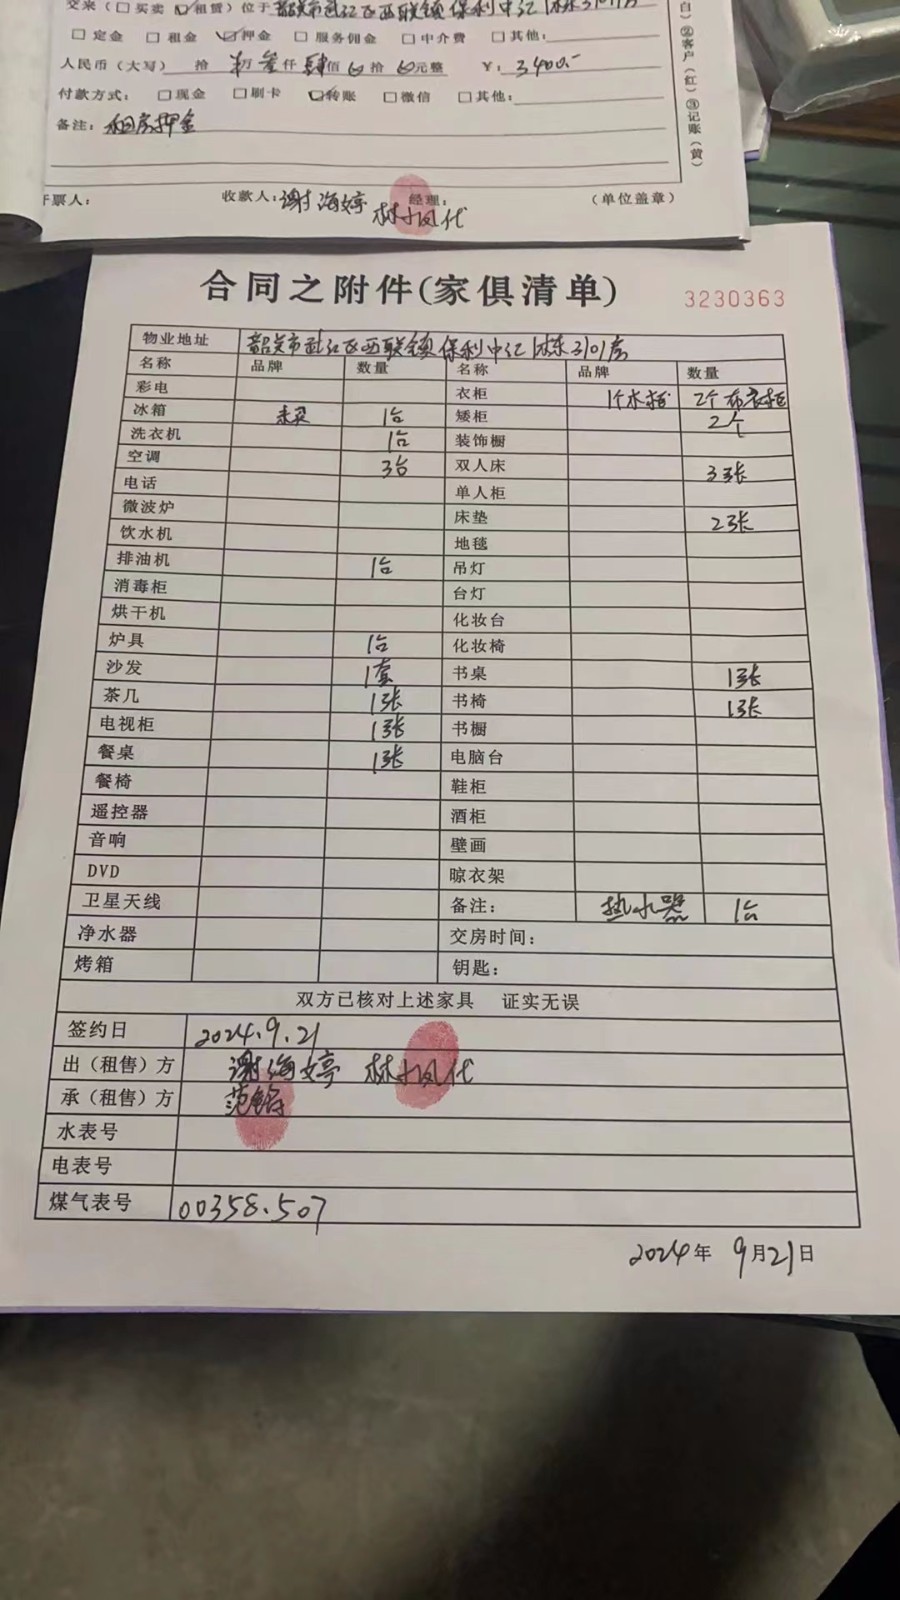 交来(□买卖 ☑租赁)位于韶关市武江区西联镇保利中汇
□定金 □租金 ☑押金 □服务佣金 □中介费 □其他:
人民币(大写) 拾 万叁仟肆佰 拾 元整 ¥: 3400.-
付款方式: □现金 □刷卡 ☑转账 □微信 □其他:
备注: 租房押金
②客户(红)③记账(黄)
开票人: 收款人: 谢海婷 经理: (单位盖章)
合同之附件(家俱清单) 3230363
物业地址 韶关市武江区西联镇保利中汇 栋3101房
名称 品牌 数量 名称 品牌 数量
彩电 衣柜 1个木柜 2个布衣柜
冰箱 1台 矮柜 2个
洗衣机 1台 装饰橱
空调 3台 双人床 3张
电话 单人柜
微波炉 床垫 2张
饮水机 地毯
排油机 1台 吊灯
消毒柜 台灯
烘干机 化妆台
炉具 1台 化妆椅
沙发 1套 书桌 1张
茶几 1张 书椅 1张
电视柜 1张 书橱
餐桌 1张 电脑台
餐椅 鞋柜
遥控器 酒柜
音响 壁画
DVD 晾衣架
卫星天线 备注: 热水器 1台
净水器 交房时间:
烤箱 钥匙:
双方已核对上述家具 证实无误
签约日 2024.9.21
出(租售)方 谢海婷
承(租售)方 范
水表号
电表号
煤气表号 00358.507
2024年 9月21日